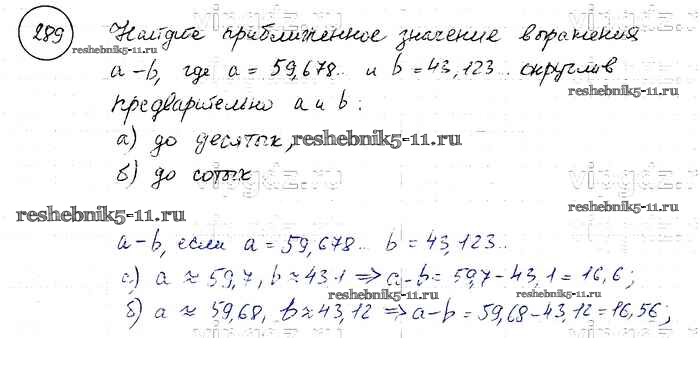 289 Найдите приближенное значение выражения
reshebnik5-11.ru
а-b, где a = 59,678.. и b = 43,123... округлив
reshebnik5-11.ru
предварительно a и b:
а) до десятых,
reshebnik5-11.ru
б) до сотых
vipgdz.ru
reshebnik5-11.ru
reshebnik5-11.ru
a-b, если a = 59,678... b = 43,123..
а) a ≈ 59,7, b ≈ 43.1 ⇒ a-b = 59,7-43,1 = 16,6;
reshebnik5-11.ru
reshebnik5-11.ru
б) a ≈ 59,68, b ≈ 43,12 ⇒ a-b = 59,68-43,12 = 16,56;